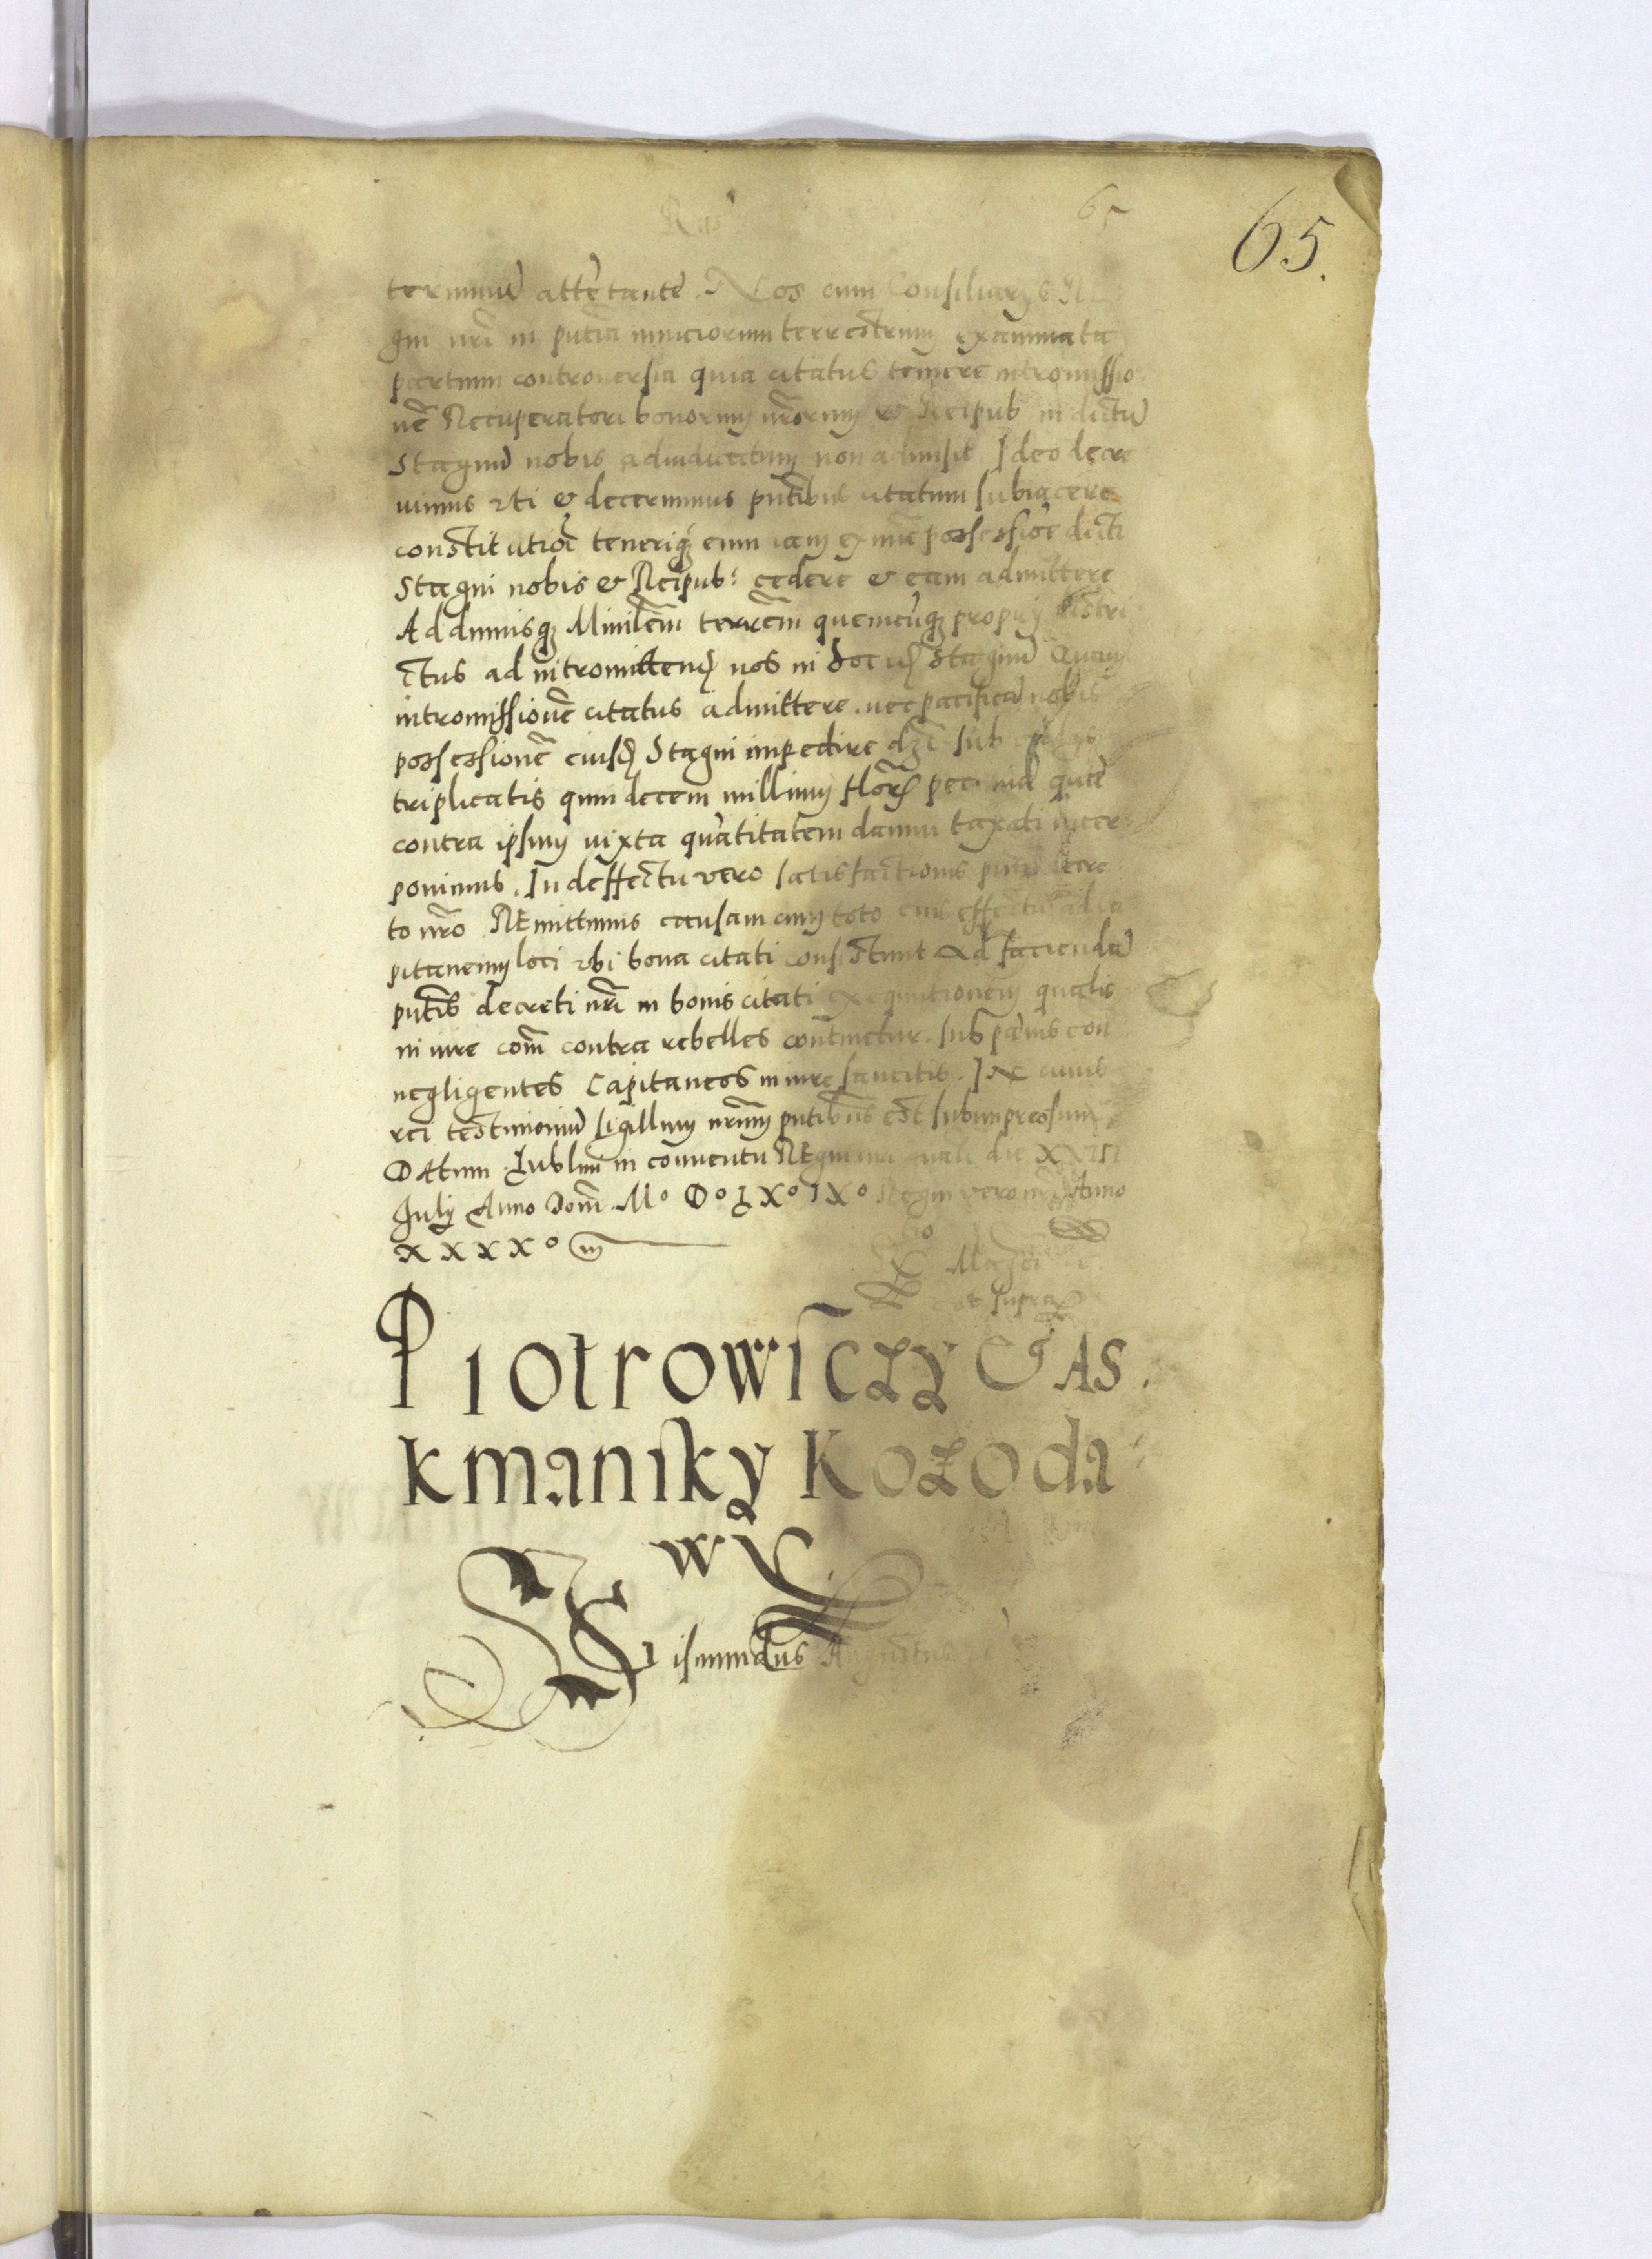 65
65.
terminũ attẽtante. Nos cum Consiliarijs Re
gni nrĩ in pñtia nuncior͂um terrestrium examinata
partium controuersia quia citatus temere intromissio
nẽ Recuperatori bonorum nrõrum & Reipub in dictũ
Stagnũ nobis adiudicatum non admisit. Ideo decre
uimus vti & decernimus pñtibus citatum subiacere
constitutiõi teneriq; eum iam ex nũc possessiõe dicti
Stagni nobis & Reipub: cedere & eam admittere
Addimusq; Minilẽm terrẽm quemcũq; proprij distri
ctus ad intromittend nos in hoc Stagnũ Quam
intromissionẽ citatus admittere. nec pacificã nobis
possessionẽ eiusd Stagni impedire sub
triplicatis quindecem millium florẽ quã
contra ipsum iuxta quãtitatem damni taxati inter
ponimus. In deffectu vero satisfactionis decre
to nrõ REmittimus causam cum toto eius effectu ad Ca
pitaneum loci vbi bona citati consistunt Ad faciendã
pñtis decreti nrĩ in bonis citati exequutionem qualis
in iure com̃ contra rebelles continetur. sub pænis con
negligentes Capitaneos in iure sancitis. IN cuius
rei testimoniũ sigillum nrũm pñtibus est subimpressum
DAtum Lublini in conuentu REgni die XVIII
July Anno Dom̃ Mº Dº LXº IXº Regni vero nrĩ Anno
XXXXº
ut supra
PIotrowiczy GAs
kmansky Kozoda
wy.
SGismundus Augustus